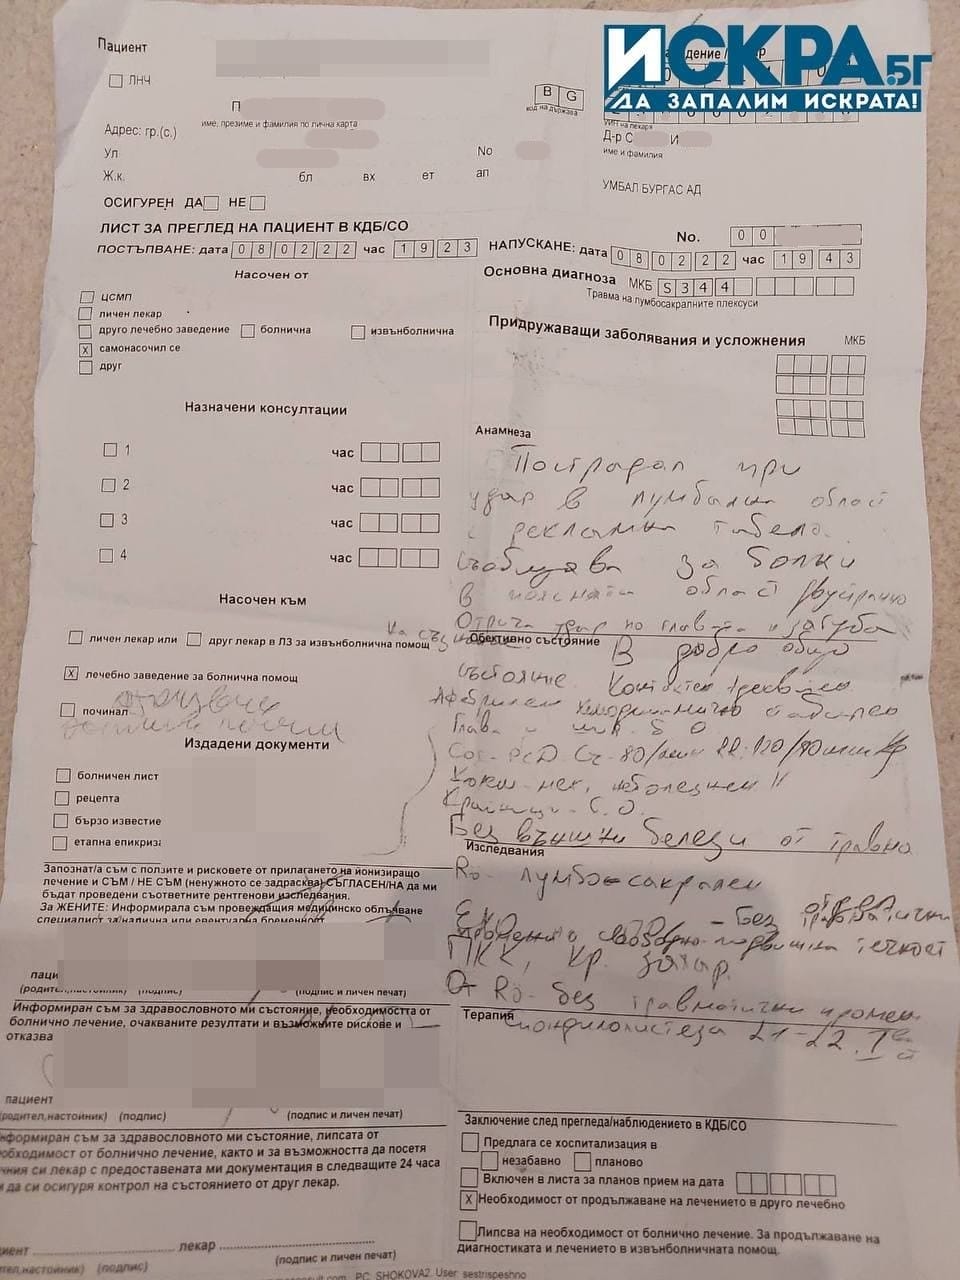 Пациент
ИСКРА.БГ
ДА ЗАПАЛИМ ИСКРАТА!
ЛНЧ
П
B G
код на държава
име, презиме и фамилия по лична карта
УИН на лекаря
Адрес: гр.(с.)
Д-р С И
Ул No
име и фамилия
Ж.к. бл вх ет ап
УМБАЛ БУРГАС АД
ОСИГУРЕН ДА НЕ
ЛИСТ ЗА ПРЕГЛЕД НА ПАЦИЕНТ В КДБ/СО
No. 0 0
ПОСТЪПВАНЕ: дата 0 8 0 2 2 2 час 1 9 2 3
НАПУСКАНЕ: дата 0 8 0 2 2 2 час 1 9 4 3
Насочен от
ЦСМП
личен лекар
друго лечебно заведение болнична извънболнична
x самонасочил се
друг
Основна диагноза МКБ S 3 4 4
Травма на лумбосакралните плексуси
Придружаващи заболявания и усложнения МКБ
Назначени консултации
1 час
2 час
3 час
4 час
Анамнеза
Пострадал при
удар в лумбална област
с рекламна табела.
Съобщава за болки
в поясната област двустранно
Отрича удар по главата и загуба
на съзнание.
Насочен към
личен лекар или друг лекар в ЛЗ за извънболнична помощ
x лечебно заведение за болнична помощ
починал
Обективно състояние
В добро общо
състояние. Контактен адекватен
Афебрилен хемодинамично стабилен
Глава и шия б.о
80/мин 120/80 mmHg
Корем мек, неболезнен
Крайници - б.о.
Без външни белези от травма
Издадени документи
болничен лист
рецепта
бързо известие
етапна епикриза
Запознат/а съм с ползите и рисковете от прилагането на йонизиращо
лечение и СЪМ / НЕ СЪМ (ненужното се задрасква) СЪГЛАСЕН/НА да ми
бъдат проведени съответните рентгенови изследвания.
За ЖЕНИТЕ: Информирала съм провеждащия медицинско облъчване
специалист за налична или евентуална бременност
Изследвания
Rö- лумбо-сакрален
без травматични
свободно подвижна течност
ПКК, Кр. захар
От Rö- без травматични промени
Терапия
спондилолистеза L1-L2
паци
(родител,настойник) (подпис) (подпис и личен печат)
Информиран съм за здравословното ми състояние, необходимостта от
болнично лечение, очакваните резултати и възможните рискове и
отказва
пациент
(родител,настойник) (подпис) (подпис и личен печат)
нформиран съм за здравословното ми състояние, липсата от
обходимост от болнично лечение, както и за възможността да посетя
чния си лекар с предоставената ми документация в следващите 24 часа
и да си осигуря контрол на състоянието от друг лекар.
циент лекар
(родител,настойник) (подпис) (подпис и личен печат)
Заключение след прегледа/наблюдението в КДБ/СО
Предлага се хоспитализация в
незабавно планово
Включен в листа за планов прием на дата
x Необходимост от продължаване на лечението в друго лечебно
Липсва на необходимост от болнично лечение. За продължаване на
диагностиката и лечението в извънболничната помощ.
PC: SHOKOVA2. User: sestrispeshno